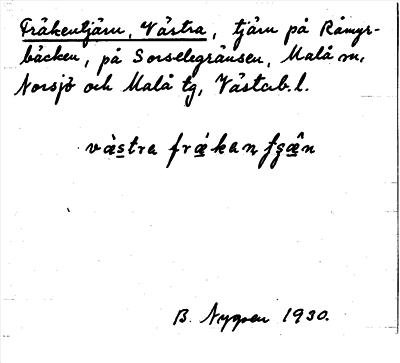 Fräkentjärn, Västra, tjärn på Råmyr-
bäcken, på Sorselegränsen, Malå sn,
Norsjö och Malå tg, Västerb. l.
västra frækan
B. Nygren 1930.